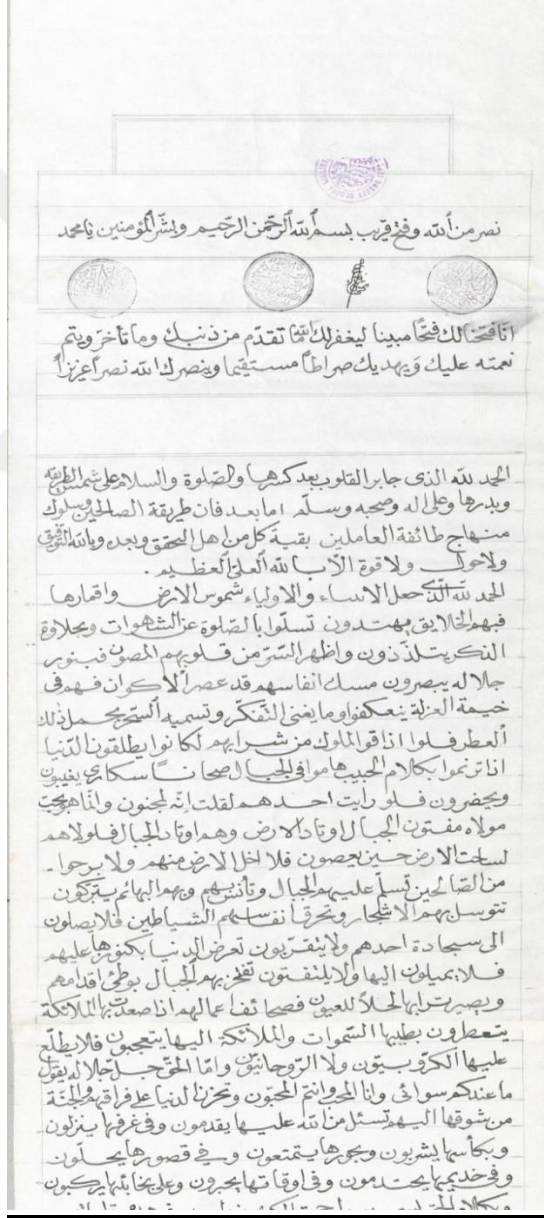 نصر من ٱلله وفتح قريب بسم ٱلله ٱلرّحمن الرّحيم وبشّر ٱلمؤمنين يا محمد
انّا فتحنا لك فتحًا مبينا ليغفر لك اللّه ما تقدّم من ذنبك وما تأخّر ويتم
نعمته عليك وَيهديك صراطاً مستقيما وينصرك الله نصراً عزيزاً
الحمد لله الذى جابر القلوب بعد كسرها والصّلوة والسلام على شمس الطريقة
وبدرها وعلى اله وصحبه وسلّم اما بعد فان طريقة الصالحين وسلوك
منهاج طائفة العاملين بقية كل من اهل التحقق وبعده وبالله التوفيق
ولا حول ولا قوة الّا بالله ٱلعلى ٱلعظيم .
الحمد لله الّذى جعل الانبياء والاولياء شموس الارض واقمارها
فبهم الخلايق يهتدون تسلّوا بالصّلوة عن الشاهوات وبحلاوة
الذكر يتلذّذون واظهر السّر من قلوبهم المصون فبنور
جلاله يبصرون مسك انفاسهم قد عصر الاكوان فهم فى
خيمة العزلة ينعكفوا وما يغنى التّفكّر وتسميه السّحر يحمل ذلك
ٱلعطر فلوا اذاقوا الملوك من شرابهم لكانوا يطلقون الدّنيا
اذا ترنموا بكلام الحبيب هاموا فى الجبال سكارى يغيبون
ويحضرون فلو رايت احدهم لقلت انّه لمجنون وانّما هو بحبّ
مولاه مفتون الجبال اوتاد الارض وهم اوتاد الجبال فلولاهم
لساخت الارض حين يعصون فلا اخل الارض منهم ولا برحوا .
من الصّالحين تسلّم عليهم الجبال وتأنس بهم وبهم البهائم يتبركون
تتوسل بهم الاشجار وتحرق انفاسهم الشياطين فلا يصلون
الى سجادة احدهم ولا يتقرّبون تعرض الدنيا بكنوزها عليهم
فلا يميلون اليها ولا يلتفتون تفخر بهم الجبال بوطئ اقدامهم
ويصير ترابها كحلاً للعيون فصحائف اعمالهم اذا صعدت بها الملائكة
يتعطرون بطيبها السّموات والملائكة اليها يتعجبون فلا يطّلع
عليها الكرّوبيّون ولا الرّوحانيّون وامّا الحقّ جلّ جلاله يقول
ما عندكم سوائى وانا المحبّ وانتم المحبّون وتحزن الدنيا على فراقهم والجنّة
من شوقها اليهم تسئل من الله عليها يقدمون وفى غرفها ينزلون
وبكأسها يشربون وبحورها يتمتعون وفى قصورها يحلّون
وفى خديمها يخدمون وفى اوقاتها يحبرون وعلى نجائبها يركبون